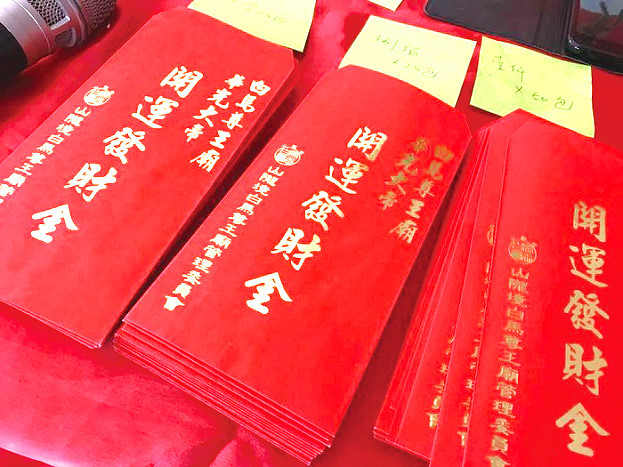 白馬尊王廟
華光大帝
開運發財金
山隴境白馬尊王廟管理委員會
白馬尊王廟
華光大帝
開運發財金
山隴境白馬尊王廟管理委員會
壹仟
x50包
開運發財金
山隴境白馬尊王廟管理委員會